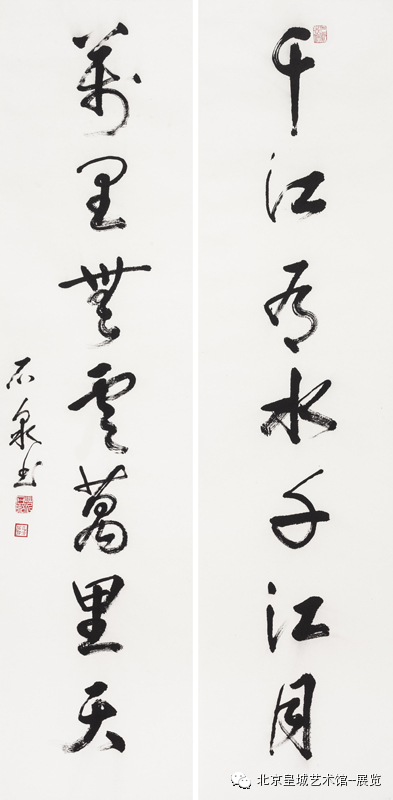 千江有水千江月
萬里無雲萬里天
石泉书
北京皇城艺术馆--展览